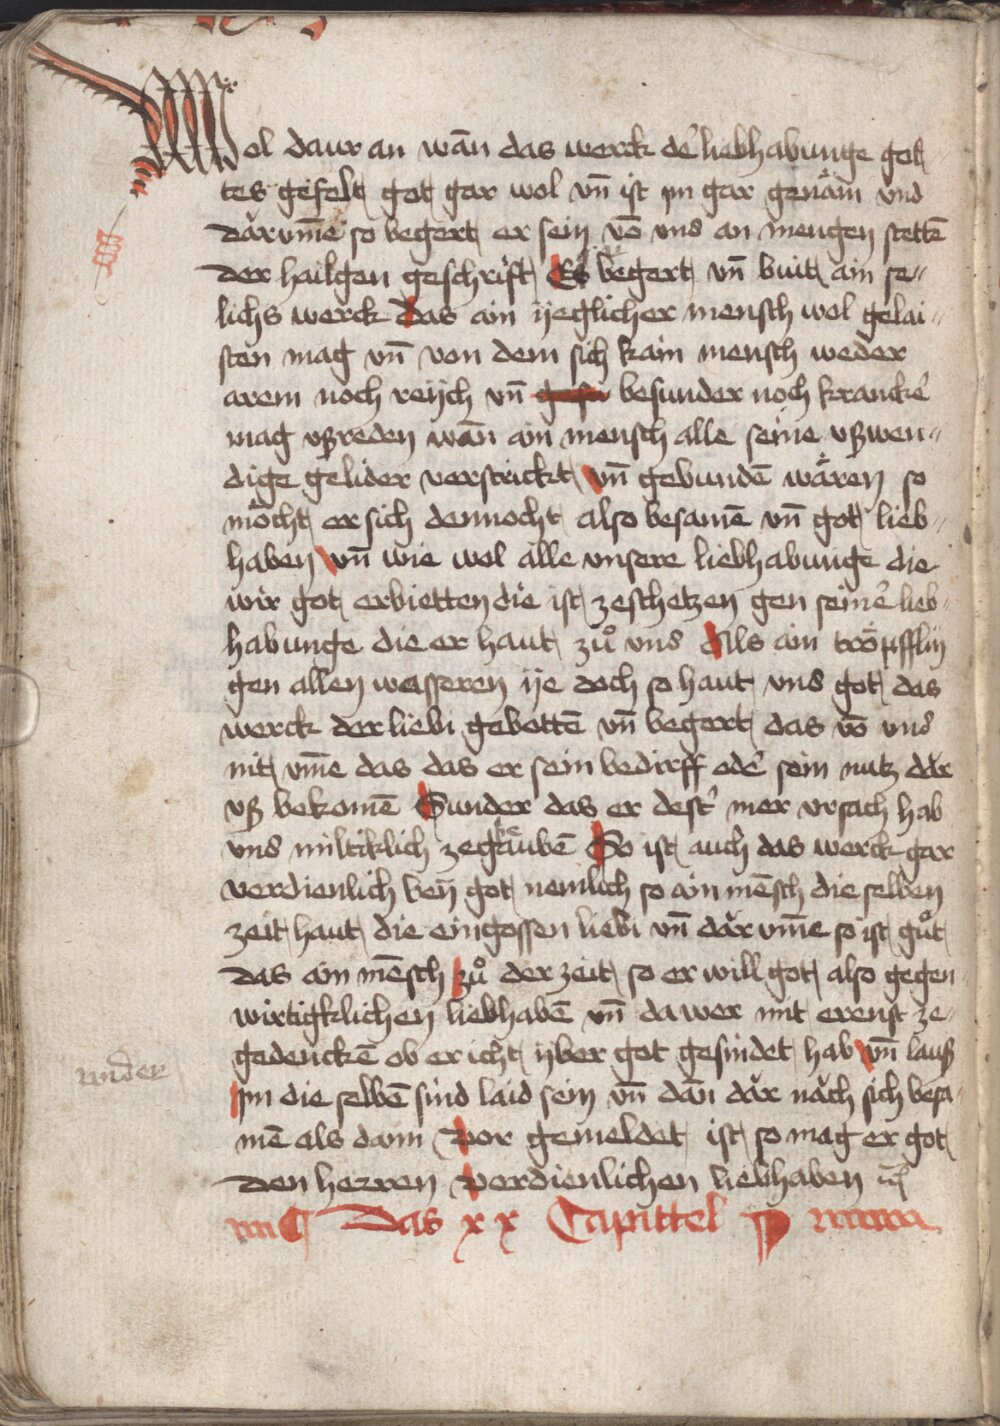 Wol daur an wān das werck dē liebhabunge got
tes gefelt got gar wol vn̄ ist jm gar genäm vnd
dar vm̄e so begert er sein vō vns an mengen stettē
der hailgen geschrift Es begert vn̄ buit ain se〟
lichs werck das ain yeglicher mensch wol gelai〟
sten mag vn̄ von dem sich kain mensch weder
arem noch reych vn̄ besunder noch kranckē
mag vßreden wān ain mensch alle seine vßwen〟
dige gelider verstrickt vn̄ gebundē wären so
möcht er sich dennocht also besamē vn̄ got lieb〟
haben vn̄ wie wol alle vnsere liebhabunge die
wir got erbietten die ist zeschetzen gen seinē lieb〟
habunge die er haut zuͦ vns Als ain tröpfflin
gen allen wasseren ye doch so haut vns got das
werck der liebi gebottē vn̄ begert das vō vns
nit vm̄e das das er sein bedirff odē sein nutz dar
vß bekomē Sunder das er dest mer vrsach hab
vns miltiklich zegäubē So ist auch das werck gar
verdienlich ben̄ got nemlich so ain mēsch die selben
zeit haut die eingossen liebi vn̄ dar vm̄e so ist guͦt
das ain mēsch zuͦ der zeit so er will got also gegen
wirtigklichen liebhabē vn̄ da wer mit erenst ze〟
gedenckē ob er icht yber got gesündet hab vn̄ lauß
jm die selbē sind laid sein vn̄ dān dar nach sich besa〟
mē als dann vor gemeldet ist so mag er got
den herren verdienlichen liebhaben
Das xx Capittel